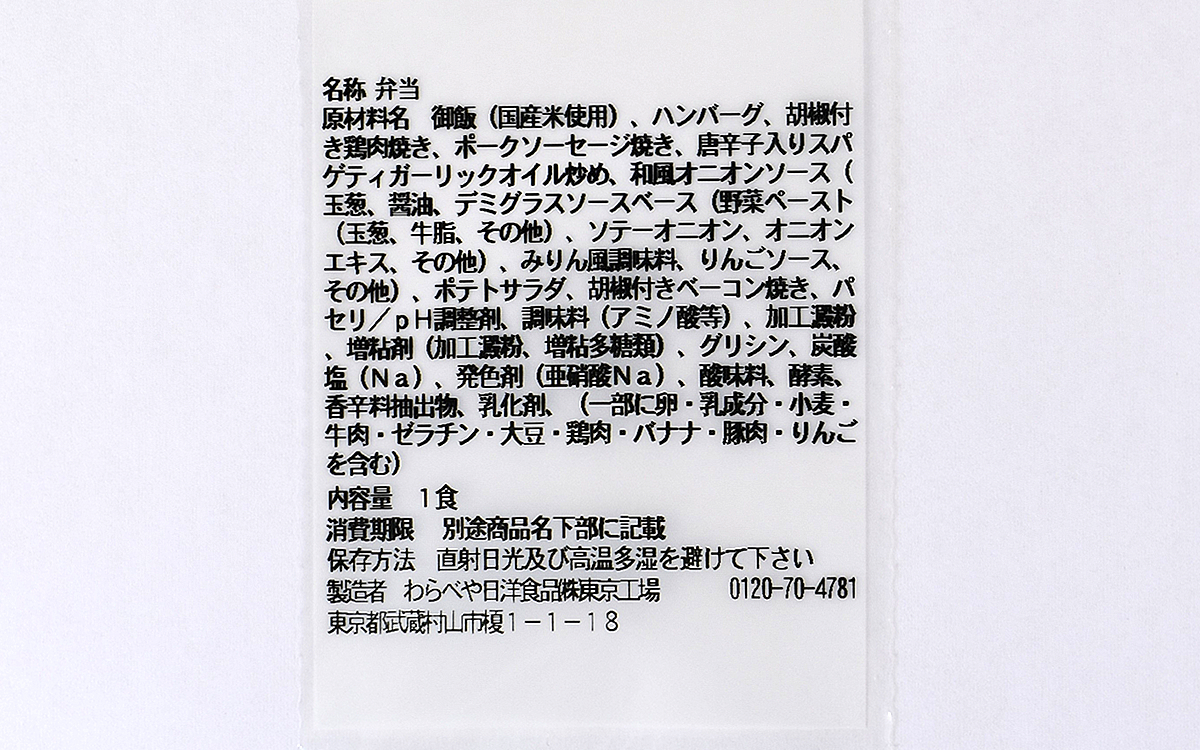 名称 弁当
原材料名　御飯（国産米使用）、ハンバーグ、胡椒付
き鶏肉焼き、ポークソーセージ焼き、唐辛子入りスパ
ゲティガーリックオイル炒め、和風オニオンソース（
玉葱、醤油、デミグラスソースベース（野菜ペースト
（玉葱、牛脂、その他）、ソテーオニオン、オニオン
エキス、その他）、みりん風調味料、りんごソース、
その他）、ポテトサラダ、胡椒付きベーコン焼き、パ
セリ／ｐＨ調整剤、調味料（アミノ酸等）、加工澱粉
、増粘剤（加工澱粉、増粘多糖類）、グリシン、炭酸
塩（Ｎａ）、発色剤（亜硝酸Ｎａ）、酸味料、酵素、
香辛料抽出物、乳化剤、（一部に卵・乳成分・小麦・
牛肉・ゼラチン・大豆・鶏肉・バナナ・豚肉・りんご
を含む）
内容量　１食
消費期限　別途商品名下部に記載
保存方法　直射日光及び高温多湿を避けて下さい
製造者　わらべや日洋食品㈱東京工場　0120-70-4781
東京都武蔵村山市榎１－１－１８